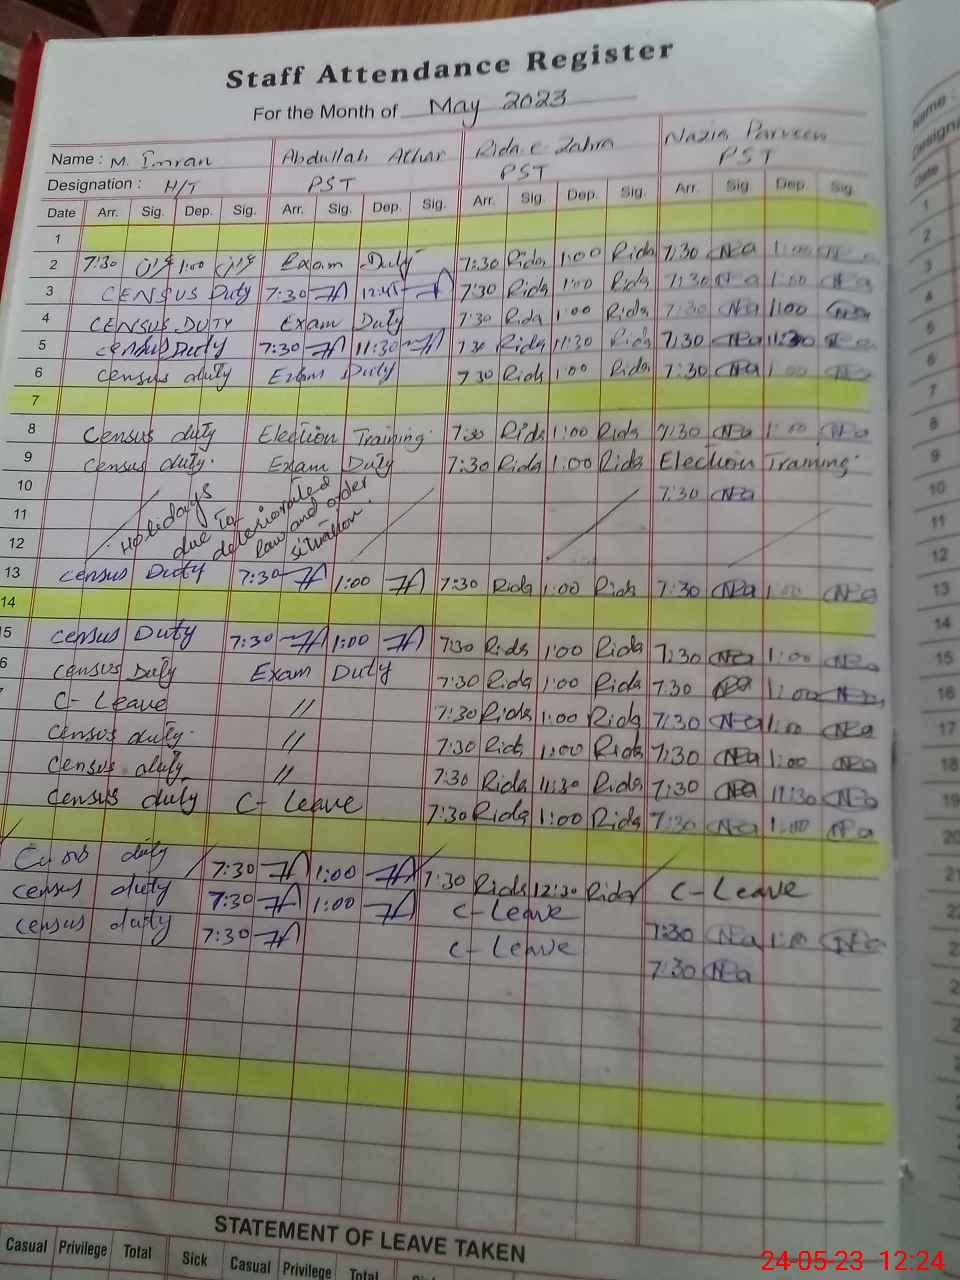 Staff Attendance Register
For the Month of May 2023
Name : M. Imran Abdullah Athar Rida e Zahra Nazia Parveen
Designation : H/T PST PST PST
Date Arr. Sig. Dep. Sig. Arr. Sig. Dep. Sig. Arr. Sig. Dep. Sig. Arr. Sig. Dep. Sig.
1
2 7:30 1:00 Exam Duty 7:30 Rida 1:00 Rida 7:30 1:00
3 CENSUS Duty 7:30 12:45 7:30 Rida 1:00 Rida 7:30 1:00
4 CENSUS DUTY Exam Duty 7:30 Rida 1:00 Rida 7:30 1:00
5 census Duty 7:30 11:30 7:30 Rida 11:30 Rida 7:30 11:30
6 census duty Exam Duty 7:30 Rida 1:00 Rida 7:30 1:00
7
8 Census duty Election Training. 7:30 Rida 1:00 Rida 7:30 1:00
9 Census duty. Exam Duty 7:30 Rida 1:00 Rida Election Training.
10 7:30
11 Holidays due to deteriorated law and order situation.
12
13 census Duty 7:30 1:00 7:30 Rida 1:00 Rida 7:30 1:00
14
15 census Duty 7:30 1:00 7:30 Rida 1:00 Rida 7:30 1:00
6 census Duty Exam Duty 7:30 Rida 1:00 Rida 7:30 1:00
C- Leave // 7:30 Rida 1:00 Rida 7:30 1:00
census duty. // 7:30 Rida 1:00 Rida 7:30 1:00
census duty // 7:30 Rida 11:30 Rida 7:30 11:30
census duty C- Leave 7:30 Rida 1:00 Rida 7:30 1:00
duty 7:30 1:00 7:30 Rida 12:30 Rida C- Leave
census duty 7:30 1:00 C- Leave 7:30 1:00
census duty 7:30 C- Leave 7:30
STATEMENT OF LEAVE TAKEN
Casual Privilege Total Sick Casual Privilege Total
24-05-23 12:24